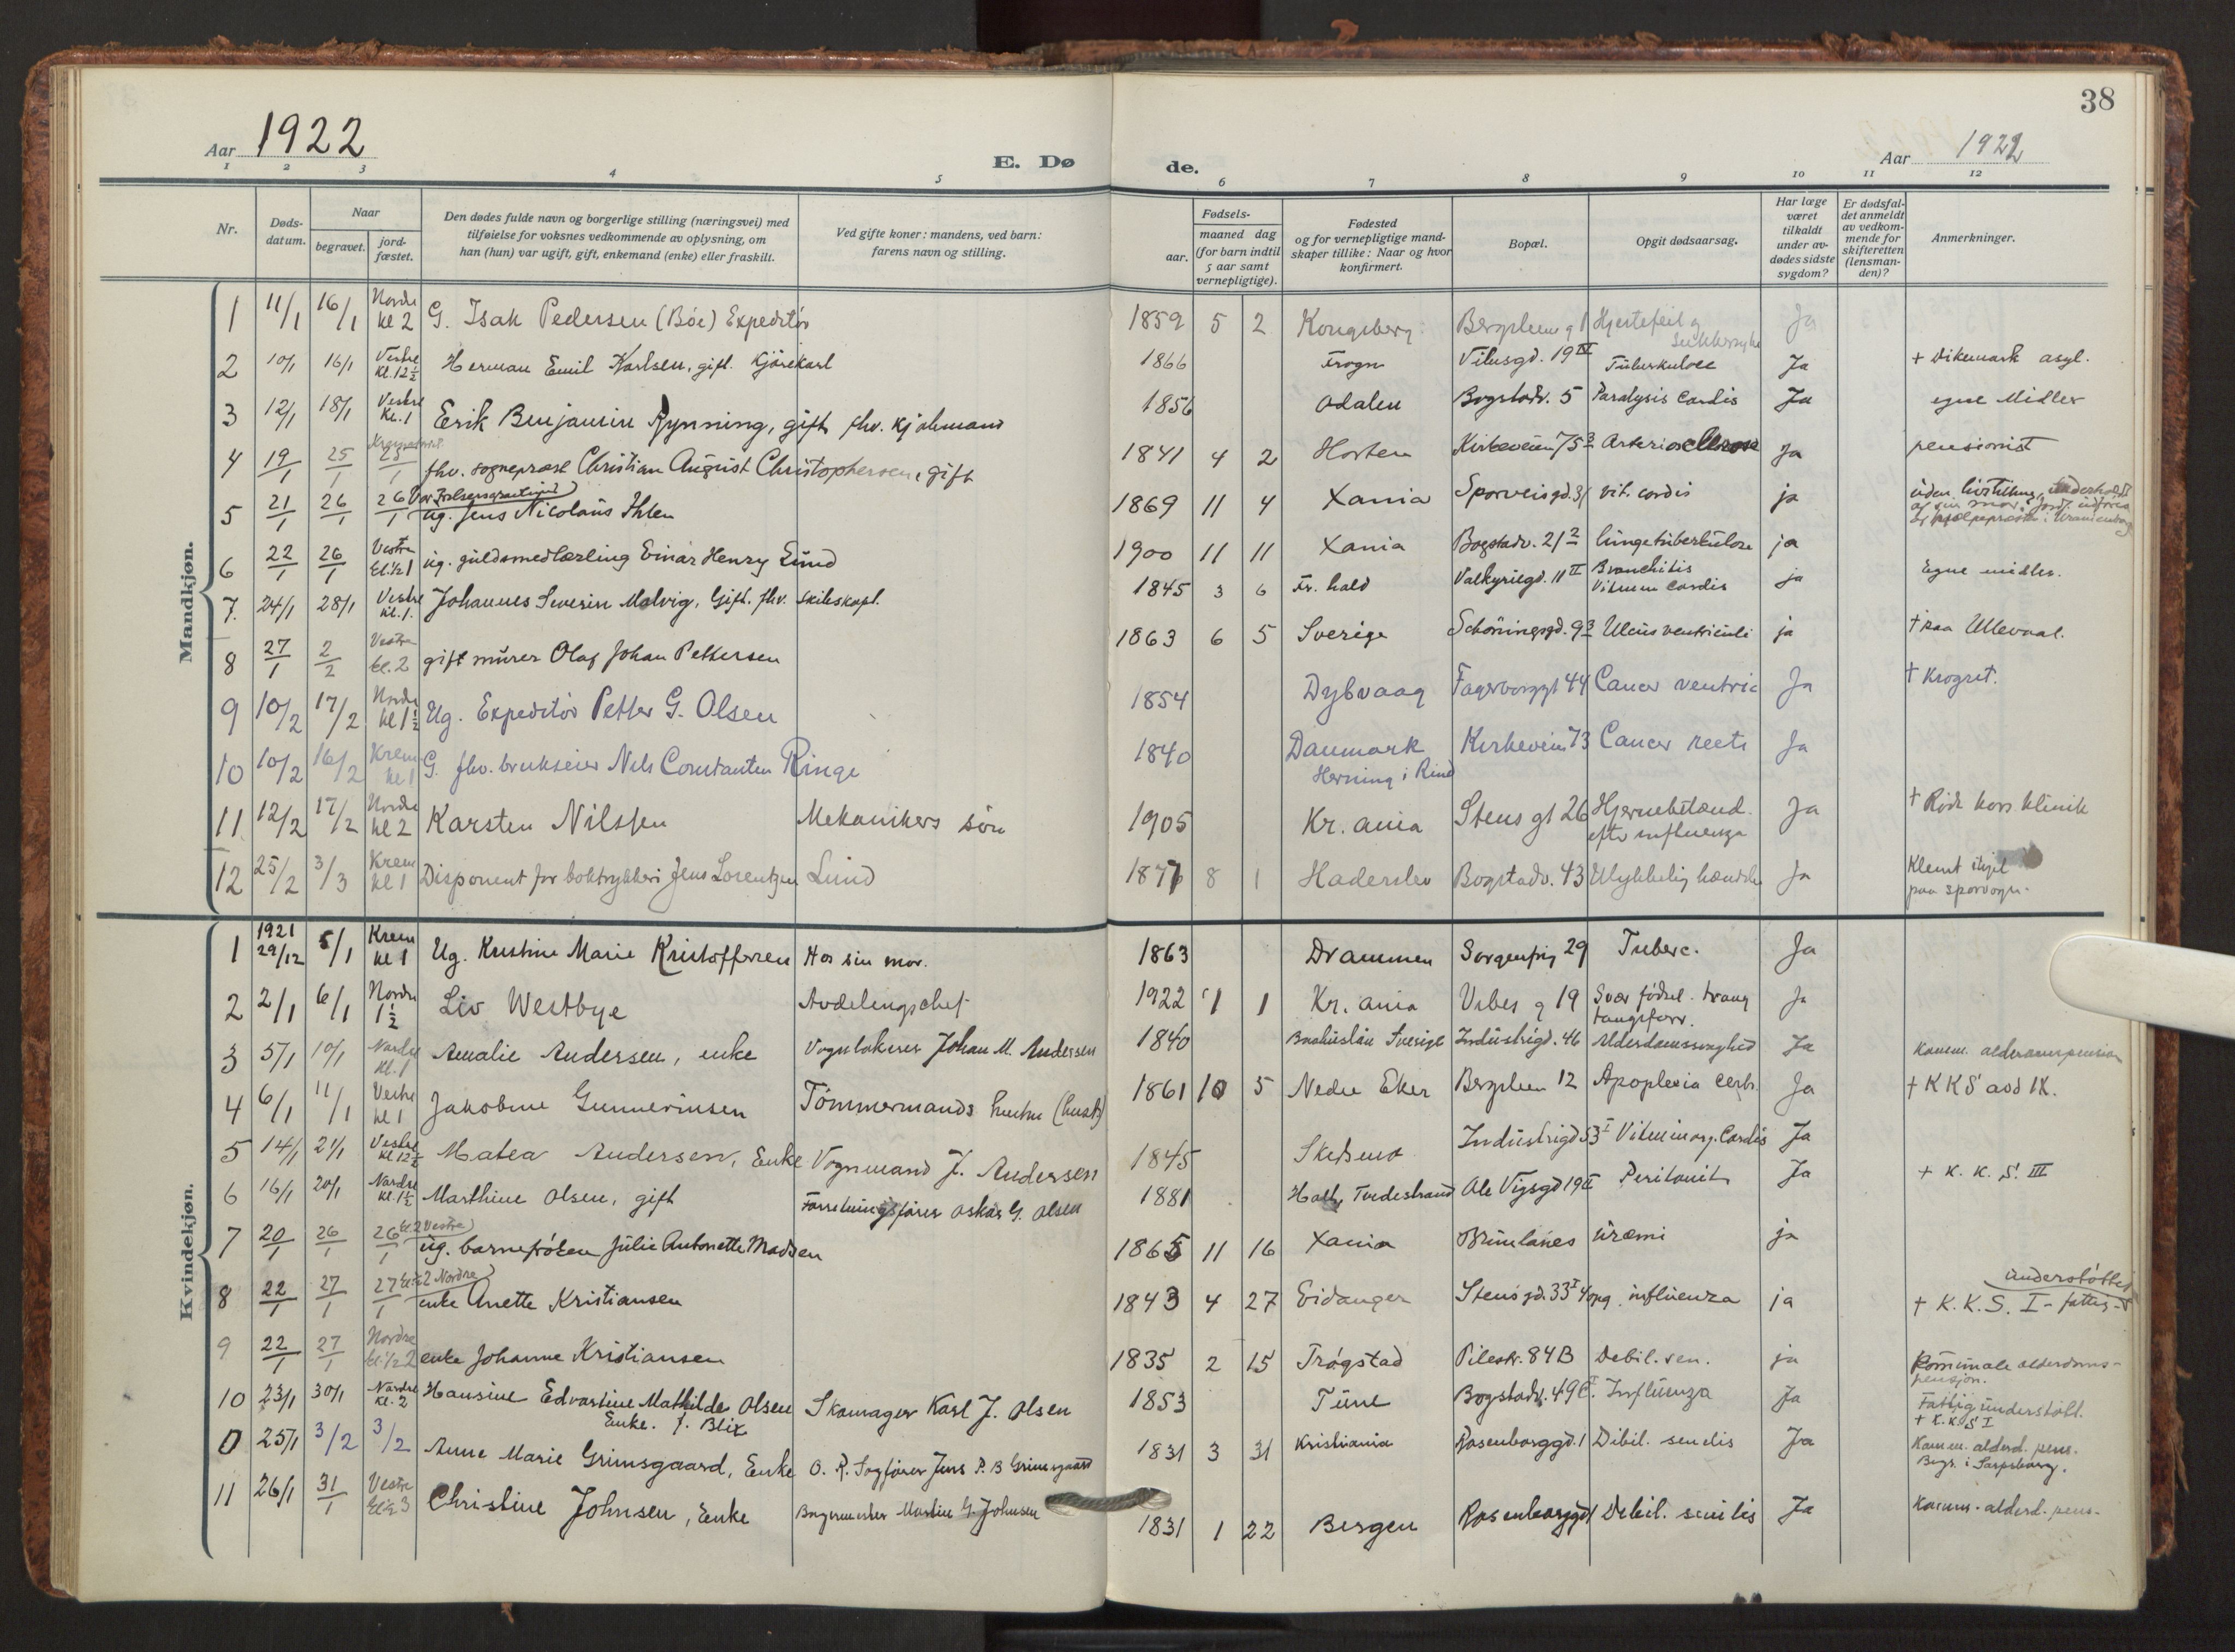 38
Aar 1922
E. Dø de.
Aar 1922
1 2 3 4 5 6 7 8 9 10 11 12
Nr.
Døds-datum.
Naar
begravet.
jord-fæstet.
Den dødes fulde navn og borgerlige stilling (næringsvei) med
tilføielse for voksnes vedkommende av oplysning, om
han (hun) var ugift, gift, enkemand (enke) eller fraskilt.
Ved gifte koner: mandens, ved barn:
farens navn og stilling.
Fødsels-
aar.
maaned dag
(for barn indtil
5 aar samt
vernepligtige).
Fødested
og for vernepligtige mand-
skaper tillike: Naar og hvor
konfirmert.
Bopæl.
Opgit dødsaarsag.
Har læge
været
tilkaldt
under av-
dødes sidste
sygdom?
Er dødsfal-
det anmeldt
av vedkom-
mende for
skifteretten
(lensman-
den)?
Anmerkninger.
Mandkjøn.
1 11/1 16/1 Nordre kl 2 G. Isak Pedersen (Böe) Expeditör 1859 5 2 Kongsberg Bergslien g 1 Hjertefeil og Sukkersyke Ja
2 10/1 16/1 Vestre Kl. 12½ Herman Emil Karlsen, gift. Kjörekarl 1866 Frogn Vibesgd. 19 IV Tuberkulose Ja + Dikemark asyl.
3 12/1 18/1 Vestre Kl. 1 Erik Benjamin Rynning, gift fhv. kjøbmand 1856 Odalen Bogstadv. 5 Paralysis Cordis Ja egne Midler
4 19/1 25/1 25/1 fhv. sogneprest Christian August Christophersen, gift 1841 4 2 Horten Kirkeveien 75 3 Arteriosclerose Ja pensionist
5 21/1 26/1 26/1 Vor Frelsers gravlund ug. Jens Nicolaus Ihlen 1869 11 4 Xania Sporveisgd. 31 vit. cordis ja uden livstilling, underholdt af sin mor. Jordf. udföres af hjælpepræsten i Uranienborg
6 22/1 26/1 Vestre kl. ½ 1 ug. guldsmedlærling Einar Henry Lund 1900 11 11 Xania Bogstadv. 21 2 lungetuberkulose ja
7. 24/1 28/1 Vestre Kl. 1. Johannes Severin Malvig, Gift. fhv. skibskapt. 1845 3 6 Fr. hald Valkyriegd. 11 II Bronchitis Vitium Cordis ja Egne midler.
8 27/1 2/2 Vestre kl. 2 gift murer Olaf Johan Pettersen 1863 6 5 Sverige Schöningsgd. 9 3 Ulcus ventriculi ja + paa Ullevaal.
9 10/2 17/2 Nordre kl 1½ Ug. Expeditör Petter G. Olsen 1854 Dybvaag Fagerborggt 44 Cancer ventric Ja + Krogst.
10 10/2 16/2 Krem kl 1 G. fhv. brukseier Nils Constantin Ringe 1840 Danmark Herning i Rind Kirkeveien 73 Cancer recti Ja
11 12/2 17/2 Nordre kl 2 Karsten Nilssen Mekanikers sön 1905 Kr.ania Stens gt 26 Hjernebetænd. efter influenza Ja + Röde kors klinik
12 25/2 3/3 Krem kl 1 Disponent for boktrykkeri Jens Lorentzen Lund 1877 8 1 Haderslev Bogstadv. 43 Ulykkelig hændelse Ja Klemt ihjel paa sporvogn.
Kvindekjøn.
1 1921 29/12 5/1 Krem kl 1 Ug. Kristine Marie Kristoffersen Hos sin mor. 1863 Drammen Sorgenfrig 29 Tuberc. Ja
2 2/1 6/1 Nordre 1½ Liv Westbye Avdelingschef 1922 1 1 Kr.ania Vibes g 19 Svær födsel. trang tangforr. Ja
3 5/1 10/1 Nordre Kl. 1 Amalie Andersen, enke Vognlakerer Johan M. Andersen 1840 Bohuslän Sverige Industrigd. 46 Alderdomssvaghed Ja Komm. alderdomspension
4 6/1 11/1 Vestre kl 1 Jakobine Gunneriusen Tömmermands hustru 1861 10 5 Nedre Eker Bergslien 12 Apoplexia cerb. Ja + K K S avd IX.
5 14/1 21/1 Vestre Kl 12½ Matea Andersen, Enke Vognmand J. Andersen 1845 Skedsmo Industrigd 53 I Vitium org. Cordis Ja
6 16/1 20/1 Nordre Kl. 1½ Marthine Olsen, gift Forretningsförer Oskar G. Olsen 1881 Holt, Tvedestrand Ole Vigsgd 19 II Peritonit Ja + K. K. S. III
7 20/1 26/1 26/1 kl 2 Vestre ug. barnefröken Julie Antonette Madsen 1865 11 16 Xania Bruunlanes uræmi ja
8 22/1 27/1 27/1 kl ½ 2 Nordre enke Anette Kristiansen 1843 4 27 Eidanger Stensgd. 33 I influenza ja + K.K.S. I - fattig- understöttet
9 22/1 27/1 Nordre kl. ½ 2 enke Johanne Kristiansen 1835 2 15 Trögstad Pilestr. 84 B Debil. sen. ja Kommunale alderdoms-pensjon.
10 23/1 30/1 Nordre Kl. 2 Hansine Edvardine Mathilde Olsen Enke. f. Blix Skomager Karl J. Olsen 1853 Tune Bogstadv. 49 Influenza Ja Fattigunderstött. + K.K.S I
0 25/1 3/2 3/2 Anne Marie Grimsgaard, Enke O. R. Sagförer Jens P. B Grimsgaard 1831 3 31 Kristiania Rosenborggd. 1 Debil. senilis Ja Komm. alderd. pens. Begr. i Sarpsborg.
11 26/1 31/1 Vestre kl ½ 3 Christine Johnsen, Enke Bagermester Martin G. Johnsen 1831 1 22 Bergen Rosenborggd 1 Debil. senilis Ja Komm. alderd. pens.